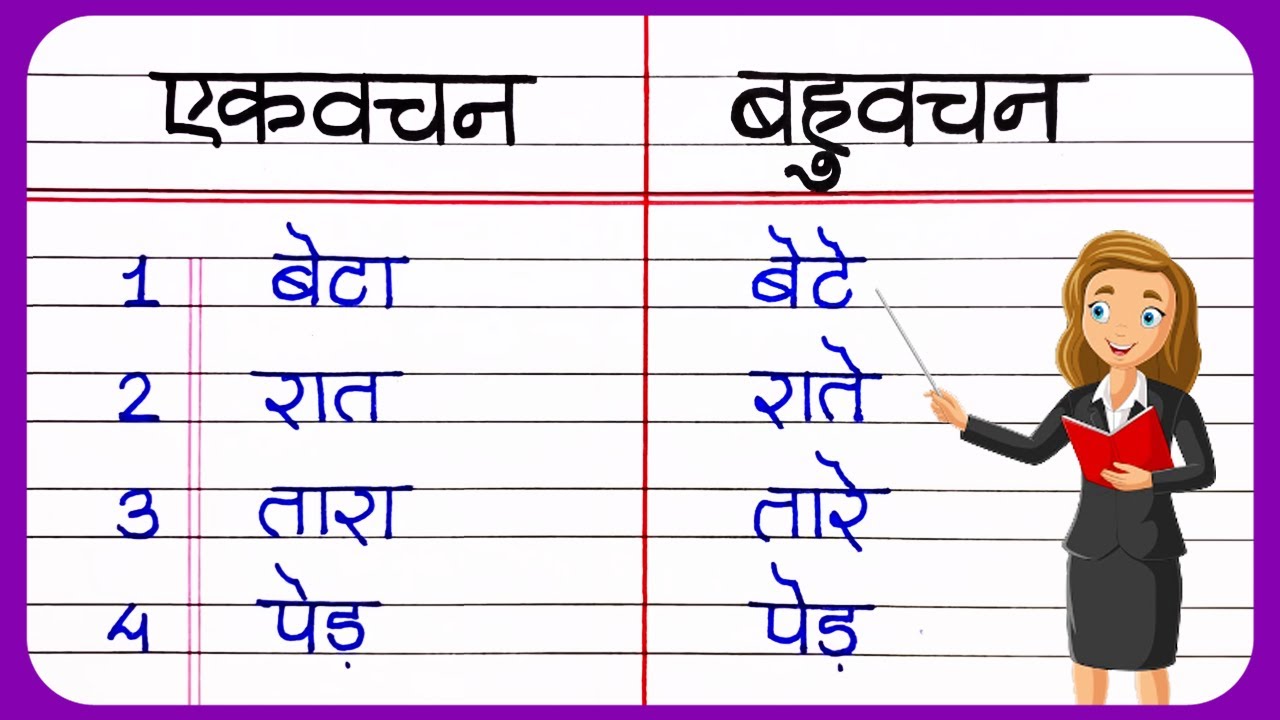 एकवचन बहुवचन
1 बेटा बेटे
2 रात राते
3 तारा तारे
4 पेड़ पेड़